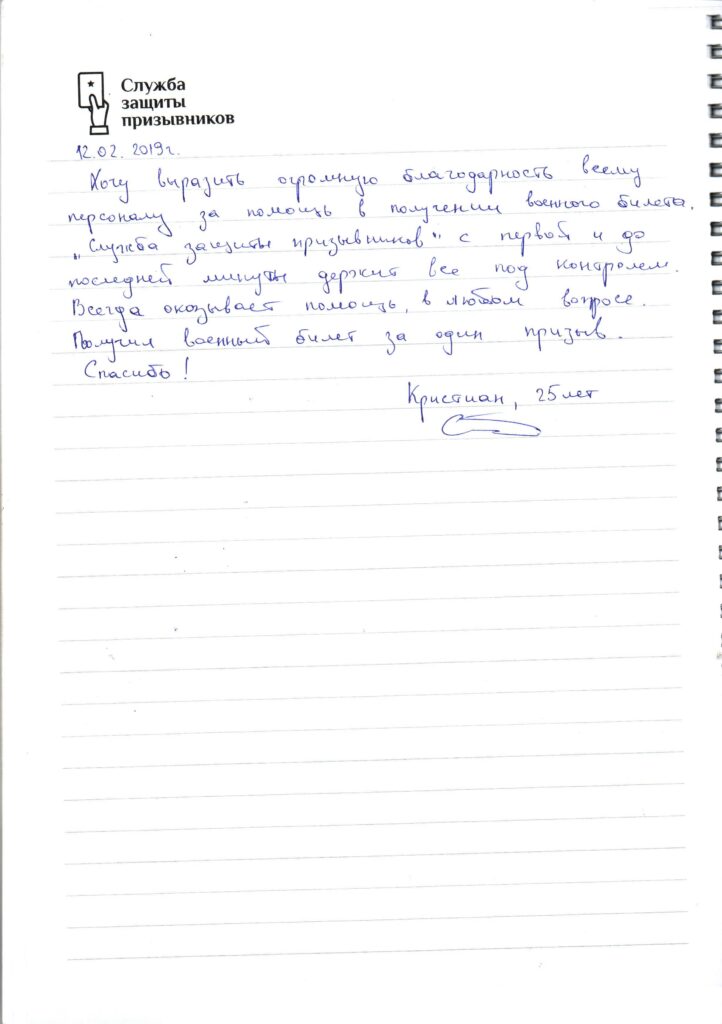 Служба
защиты
призывников
12.02.2019г.
Хочу выразить огромную благодарность всему
персоналу за помощь в получении военного билета.
„Служба защиты призывников" с первой и до
последней минуты держит все под контролем.
Всегда оказывает помощь, в любом вопросе.
Получил военный билет за один призыв.
Спасибо!
Кристиан, 25 лет